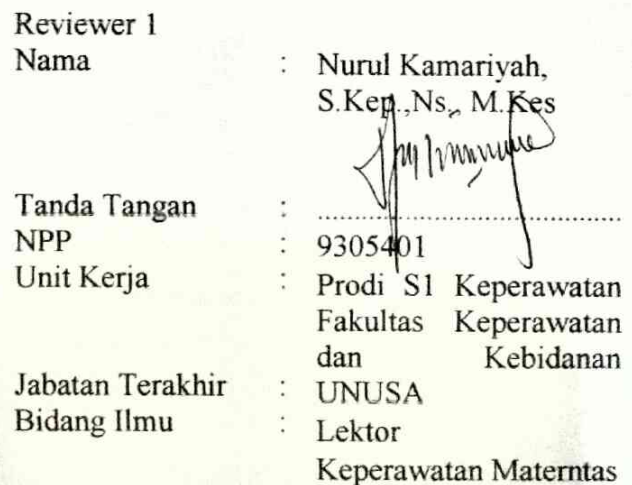 Reviewer 1
Nama : Nurul Kamariyah,
S.Kep.,Ns., M.Kes
Tanda Tangan : ........................................................
NPP : 9305401
Unit Kerja : Prodi S1 Keperawatan
Fakultas Keperawatan
dan Kebidanan
Jabatan Terakhir : UNUSA
Bidang Ilmu : Lektor
Keperawatan Materntas